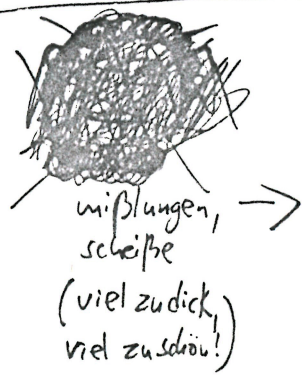 mißlungen,
scheiße
(viel zu dick,
viel zu schön!)